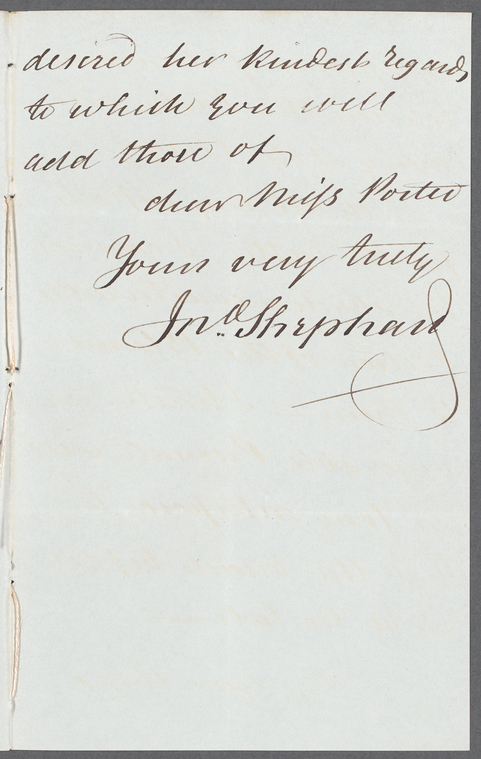 desired her kindest regards
to which you will
add those of
dear Miss Porter
Yours very truly
Jno. Shephard